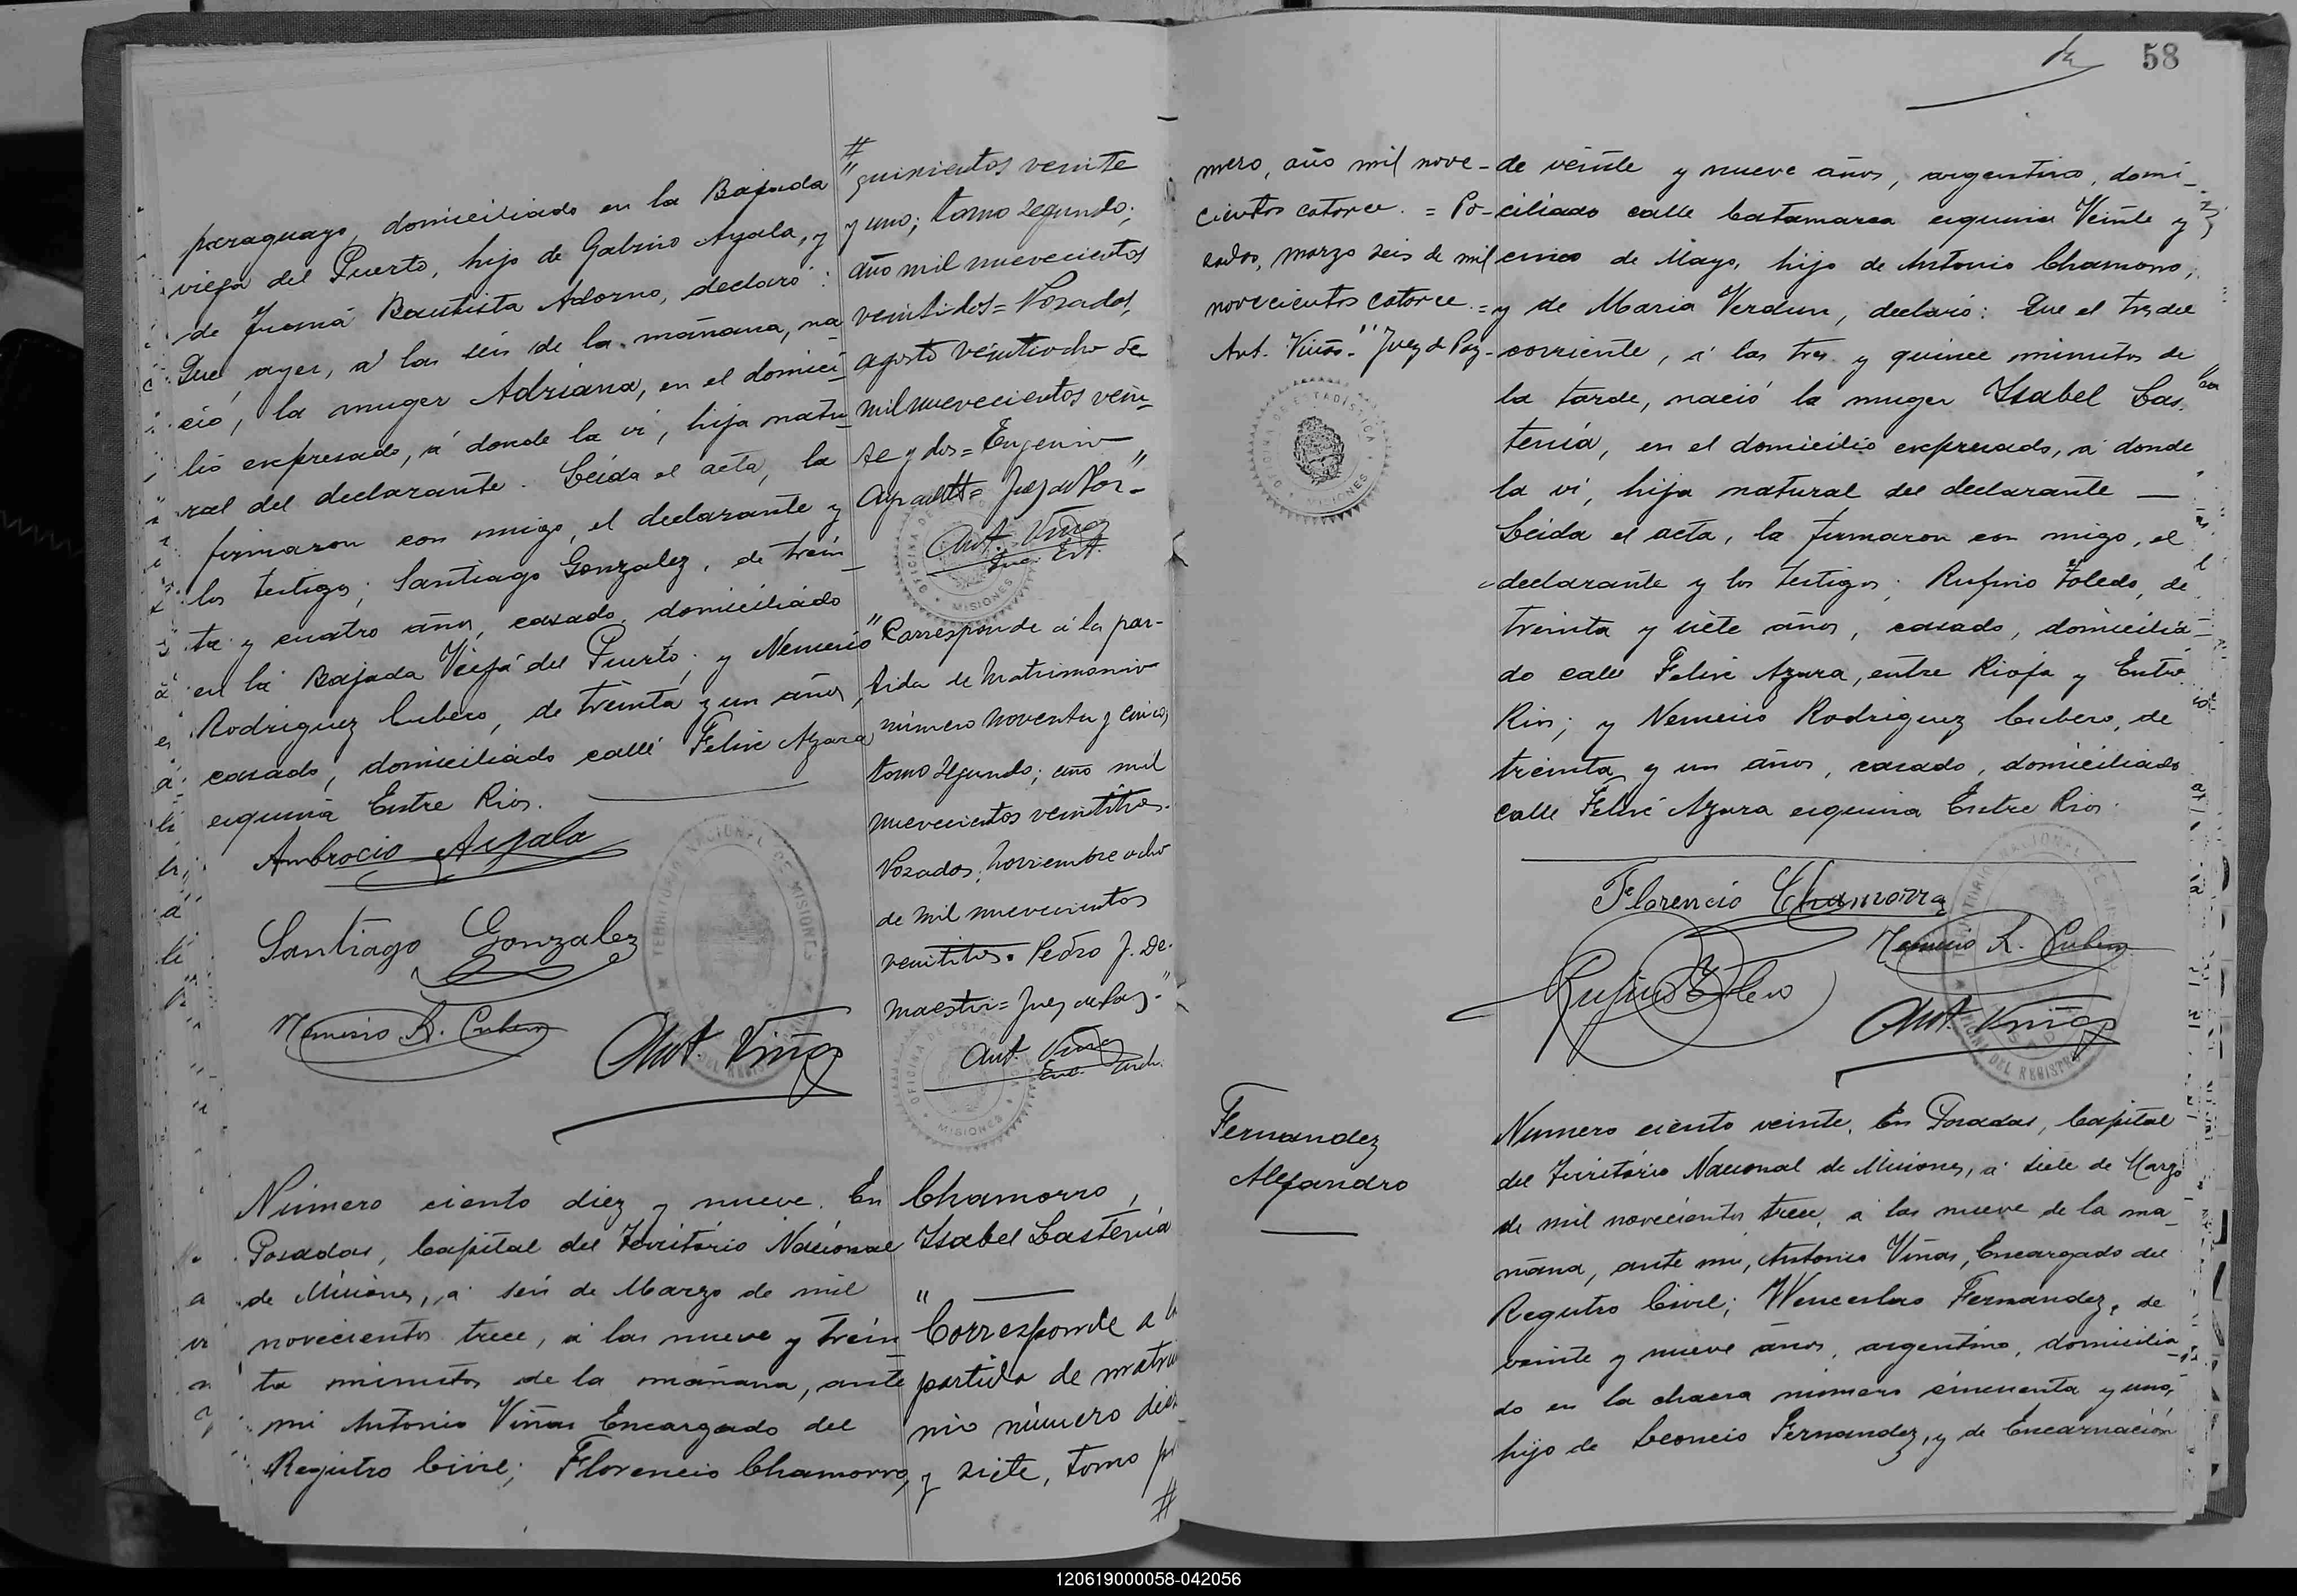 paraguayo, domiciliado en la Bajada
vieja del Puerto, hijo de Gabino Ayala, y
de Juana Bautista Adorno, declaró:
Que ayer, á las seis de la mañana, na
ció, la muger Adriana, en el domici-
lio expresado, á donde la vi, hija natu-
ral del declarante. Leida el acta, la
firmaron con migo, el declarante y
los testigos; Santiago Gonzalez, de trein-
ta y cuatro años, casado, domiciliado
en la Bajada Vieja del Puerto; y Nemesio
Rodriguez Cubero, de treinta y un años,
casado, domiciliado calle Felix Azara
esquina Entre Rios.
Ambrocio Ayala
Santiago Gonzalez
Nemesio R. Cubero
Ant. Viñas
#
"quinientos veinte
y uno; tomo segundo;
año mil nuevecientos
veintidos = Posadas,
agosto veintiocho de
mil nuevecientos vein-
te y dos = Eugenio
= Juez de Paz"
Ant. Viñas
OFICINA DE ESTADISTICA
MISIONES
"Corresponde á la par-
tida de Matrimonio
número noventa y cinco,
tomo segundo; año mil
nuevecientos veintitres.
Posadas, Noviembre ocho
de mil nuevecientos
veintitres. Pedro J. De-
maestri = Juez de Paz."
Ant. Viñas
OFICINA DE ESTADISTICA
MISIONES
TERRITORIO NACIONAL DE MISIONES
DEL REGISTRO
Número ciento diez y nueve. En
Posadas, Capital del Território Nacional
de Misiones, á seis de Marzo de mil
novecientos trece, á las nueve y trein
ta minutos de la mañana, ante
mi Antonio Viñas Encargado del
Registro Civil; Florencio Chamorro,
Chamorro,
Isabel Lastenia
"Corresponde a la
partida de matri
nio número diez
y siete, tomo pri
#
58
mero, año mil nove-
cientos catorce. = Po-
sadas, marzo seis de mil
novecientos catorce. =
Ant. Viñas." Juez de Paz-
OFICINA DE ESTADISTICA
MISIONES
de veinte y nueve años, argentino, domi-
ciliado calle Catamarca esquina Veinte y
cinco de Mayo, hijo de Antonio Chamorro,
y de Maria Verdun, declaró: Que el tres del
corriente, á las tres y quince minutos de
la tarde, nació la muger Isabel Las-
tenia, en el domicilio expresado, á donde
la vi, hija natural del declarante —
Leida el acta, la firmaron con migo, el
declarante y los testigos; Rufino Toledo, de
treinta y siete años, casado, domicilia-
do calle Felix Azara, entre Rioja y Entre
Rios; y Nemesio Rodriguez Cubero, de
treinta y un años, casado, domiciliado
calle Felix Azara esquina Entre Rios.
Florencio Chamorro
Nemesio R. Cubero
Rufino Toledo
Ant. Viñas
Fernandez
Alejandro
Numero ciento veinte. En Posadas, Capital
del Território Nacional de Misiones, á siete de Marzo
de mil novecientos trece, á las nueve de la ma-
ñana, ante mi, Antonio Viñas, Encargado del
Registro Civil; Wenceslao Fernandez, de
veinte y nueve años, argentino, domicilia
do en la chacra número cincuenta y uno,
hijo de Leoncio Fernandez, y de Encarnación
120619000058-042056